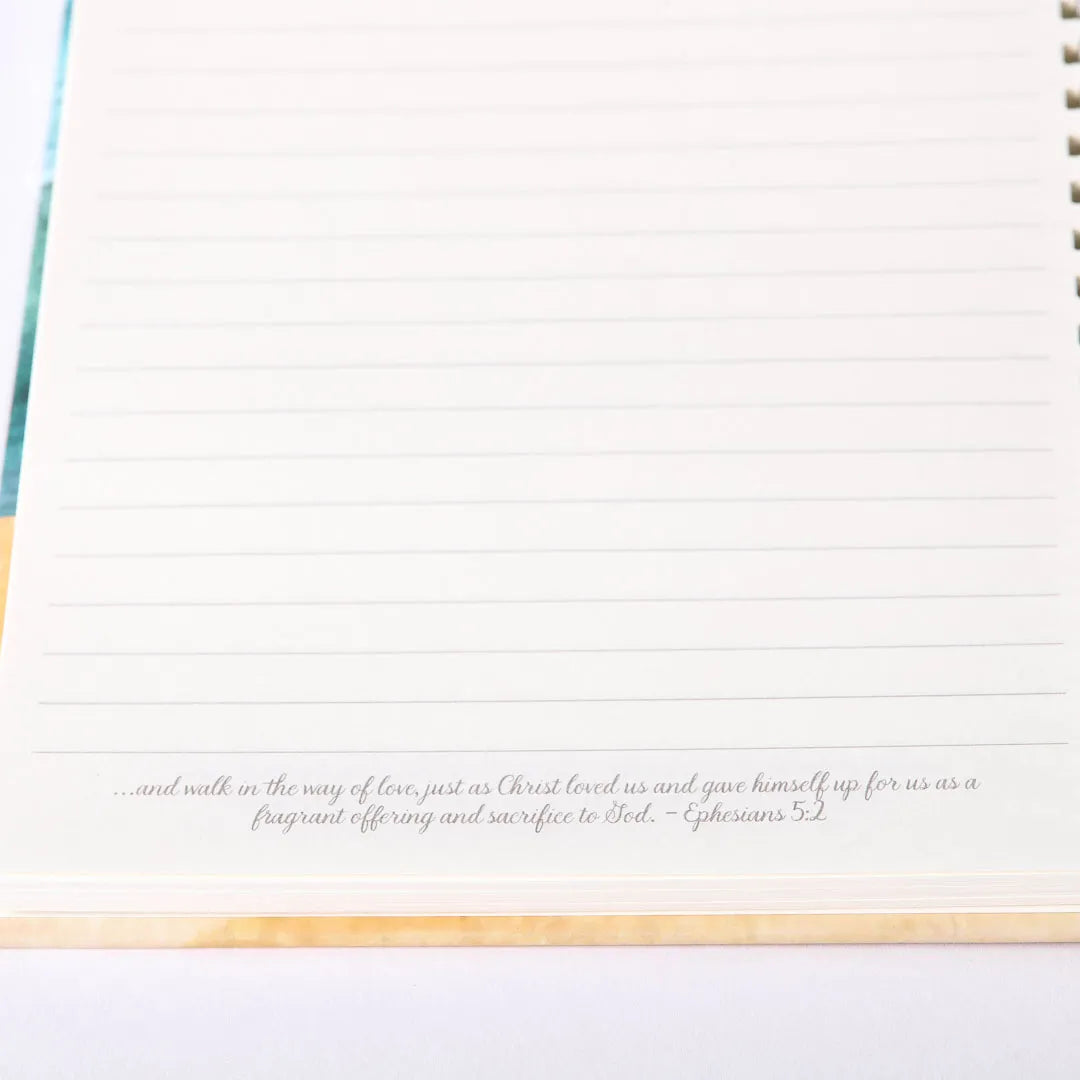 ...and walk in the way of love, just as Christ loved us and gave himself up for us as a
fragrant offering and sacrifice to God. - Ephesians 5:2